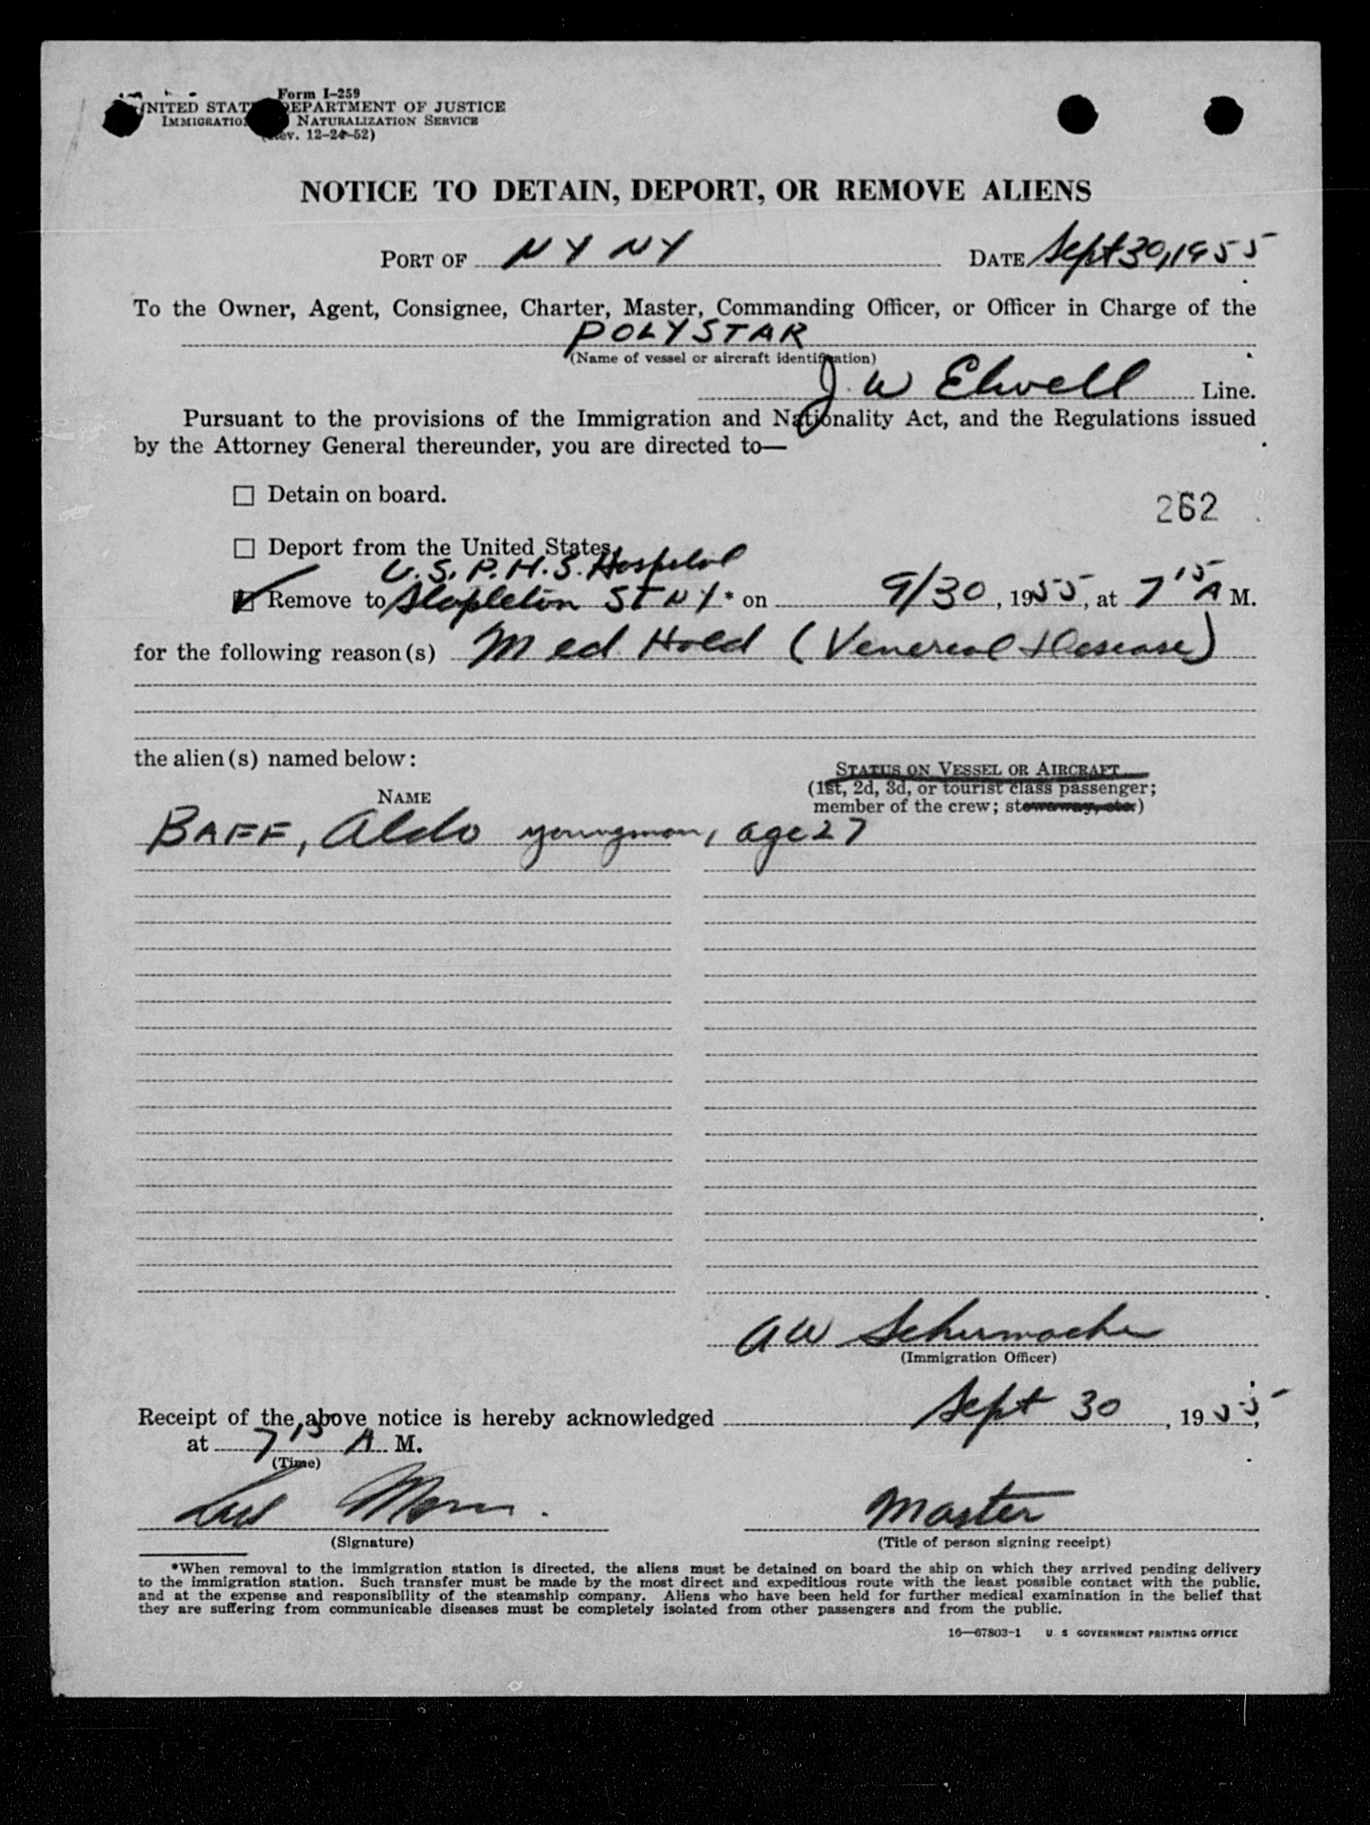 Form I-259
UNITED STATES DEPARTMENT OF JUSTICE
IMMIGRATION NATURALIZATION SERVICE
(Rev. 12-24-52)
NOTICE TO DETAIN, DEPORT, OR REMOVE ALIENS
PORT OF NY NY DATE Sept 30, 1955
To the Owner, Agent, Consignee, Charter, Master, Commanding Officer, or Officer in Charge of the
POLYSTAR
(Name of vessel or aircraft identification)
J. W Elwell Line.
Pursuant to the provisions of the Immigration and Nationality Act, and the Regulations issued
by the Attorney General thereunder, you are directed to—
☐ Detain on board.
262
☐ Deport from the United States.
U.S.P.H.S. Hospital
☑ Remove to Stapleton ST NY* on 9/30, 1955, at 7 15 A M.
for the following reason(s) Med Hold (Venereal Disease)
the alien(s) named below:
STATUS ON VESSEL OR AIRCRAFT
NAME
(1st, 2d, 3d, or tourist class passenger;
member of the crew; stowaway, etc.)
BAFF, Aldo youngman, age 27
AW Schumacher
(Immigration Officer)
Receipt of the above notice is hereby acknowledged Sept 30, 1955,
at 7 15 A M.
(Time)
Master
(Signature) (Title of person signing receipt)
*When removal to the immigration station is directed, the aliens must be detained on board the ship on which they arrived pending delivery
to the immigration station. Such transfer must be made by the most direct and expeditious route with the least possible contact with the public,
and at the expense and responsibility of the steamship company. Aliens who have been held for further medical examination in the belief that
they are suffering from communicable diseases must be completely isolated from other passengers and from the public.
16—67803-1 U. S GOVERNMENT PRINTING OFFICE